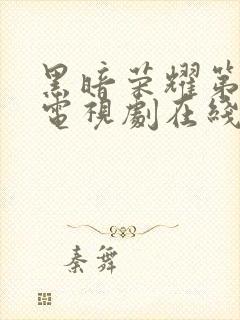 黑暗荣耀第
電視劇在綫
秦舞